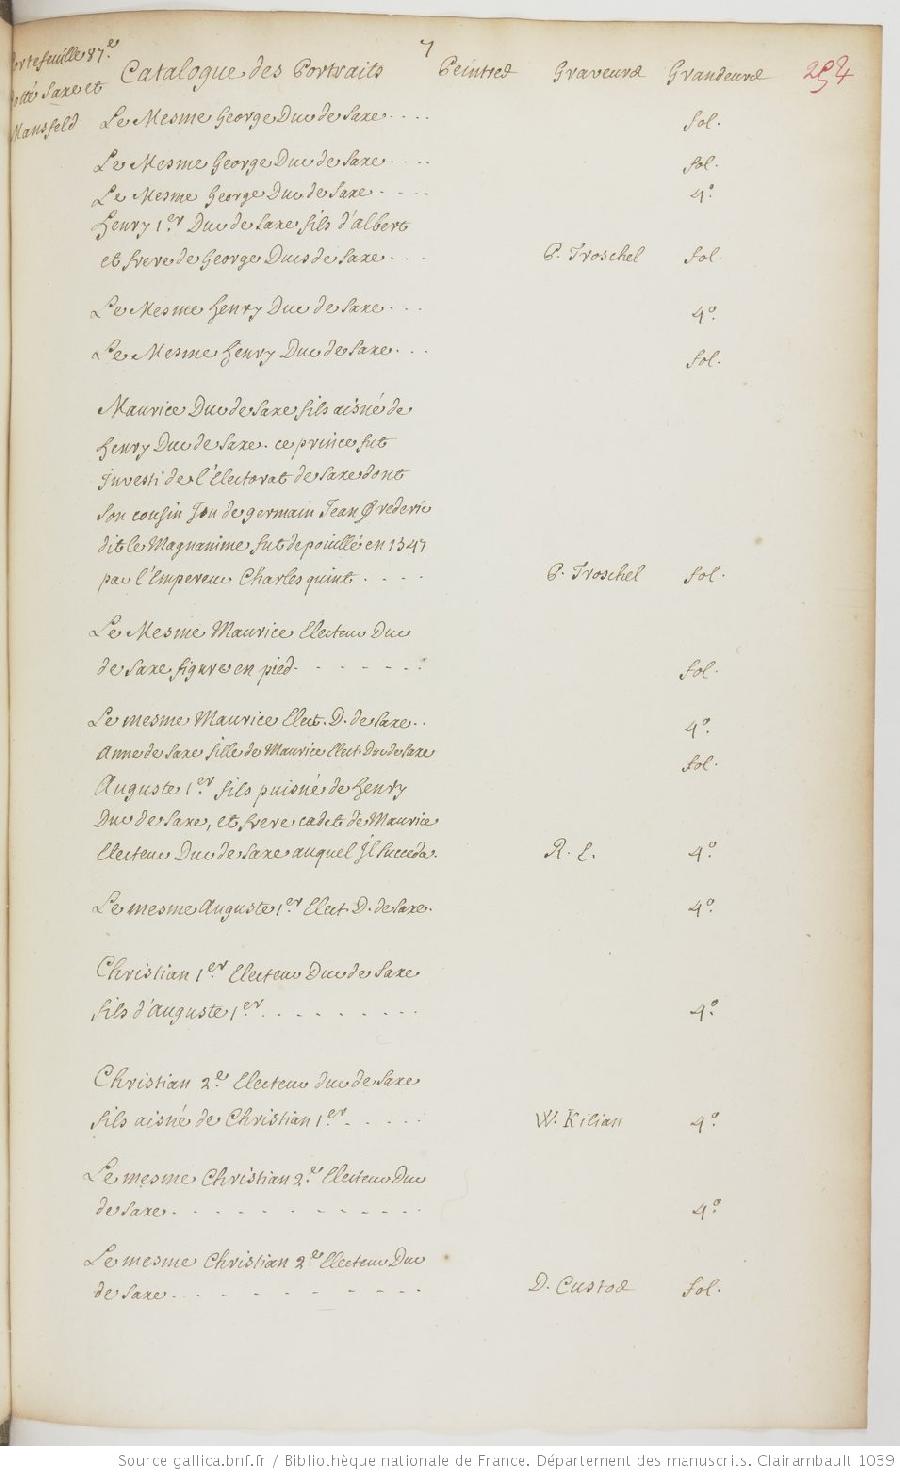 7
Portefeuille 87.e Catalogue des Portraits Peintres Graveurs Grandeurs 294
Cotté Saxe et
Mansfeld
Le Mesme George Duc de Saxe.... fol.
Le Mesme George Duc de Saxe .... fol.
Le Mesme George Duc de Saxe .... 4.o
Henry 1.er Duc de Saxe fils d'albert
et frere de George Ducs de Saxe.... P. Troschel fol
Le Mesme Henry Duc de Saxe.... 4.o
Le Mesme Henry Duc de Saxe.... fol.
Maurice Duc de Saxe fils aisné de
Henry Duc de Saxe. ce prince fut
Investi de l'Electorat de Saxe dont
son cousin de germain Jean Frederic
dit le Magnanime fut depouillé en 1547
par l'Empereur Charles quint.... P. Troschel fol.
Le Mesme Maurice Electeur Duc
de Saxe figure en pied....... fol.
Le mesme Maurice Elect. D. de Saxe.. 4.o
Anne de Saxe fille de Maurice Elect. Duc de Saxe fol.
Auguste 1.er fils puisné de Henry
Duc de Saxe, et frere cadet de Maurice
Electeur Duc de Saxe auquel Il succeda. R. L. 4.o
Le mesme Auguste 1.er Elect. D. de Saxe. 4.o
Christian 1.er Electeur Duc de Saxe
fils d'Auguste 1.er......... 4.o
Christian 2.e Electeur duc de Saxe
fils aisné de Christian 1.er..... W. Kilian 4.o
Le mesme Christian 2.e Electeur Duc
de Saxe............ 4.o
Le mesme Christian 2.e Electeur Duc
de Saxe.......... D. Custod fol.
Source gallica.bnf.fr / Bibliothèque nationale de France. Département des manuscrits. Clairambault 1039